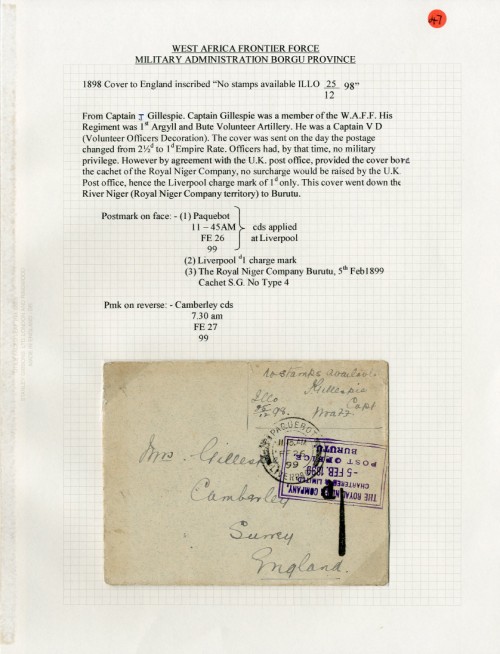 47
WEST AFRICA FRONTIER FORCE
MILITARY ADMINISTRATION BORGU PROVINCE
1898 Cover to England inscribed “No stamps available ILLO 25/12 98”
From Captain J Gillespie. Captain Gillespie was a member of the W.A.F.F. His
Regiment was 1st Argyll and Bute Volunteer Artillery. He was a Captain V D
(Volunteer Officers Decoration). The cover was sent on the day the postage
changed from 2½d to 1d Empire Rate. Officers had, by that time, no military
privilege. However by agreement with the U.K. post office, provided the cover bore
the cachet of the Royal Niger Company, no surcharge would be raised by the U.K.
Post office, hence the Liverpool charge mark of 1d only. This cover went down the
River Niger (Royal Niger Company territory) to Burutu.
Postmark on face: - (1) Paquebot
11 – 45AM cds applied
FE 26 at Liverpool
99
(2) Liverpool d1 charge mark
(3) The Royal Niger Company Burutu, 5th Feb1899
Cachet S.G. No Type 4
Pmk on reverse: - Camberley cds
7.30 am
FE 27
99
no stamps availabl.
Gillespie
Illo Capt
25/12 98.
PAQUEBOT
FE 26
99
LIVERPOOL
THE ROYAL NIGER COMPANY
CHARTERED & LIMITED
-5 FEB. 1899
POST OFFICE
BURUTU
1d
Mrs. Gillespie
Camberley
Surrey
England.